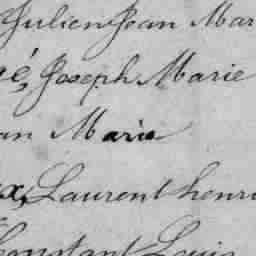 Julien Jean Mar
é, Joseph Marie
an Marie
x, Laurent henri
Constant Louis